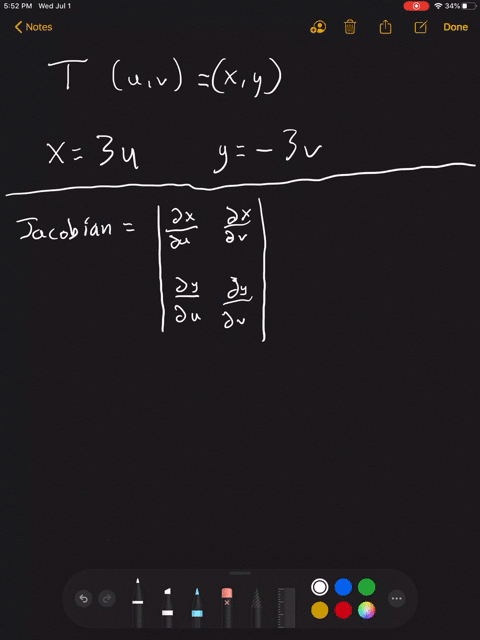 5:52 PM Wed Jul 1
34%
Notes
Done
T (u,v) = (x,y)
x = 3u y = -3v
Jacobian = | ∂x/∂u ∂x/∂v |
| ∂y/∂u ∂y/∂v |